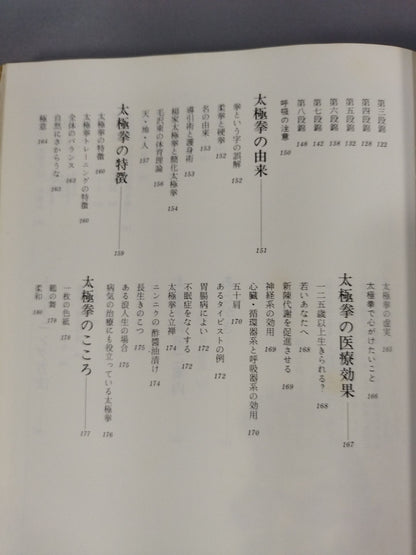 第三段錦 122
第四段錦 128
第五段錦 132
第六段錦 138
第七段錦 142
第八段錦 148
呼吸の注意 150
太極拳の由来 151
拳という字の誤解 152
柔拳と硬拳 152
名の由来 153
導引術と護身術 153
楊家太極拳と簡化太極拳 154
毛沢東の体育理論 156
天・地・人 157
太極拳の特徴 159
太極拳の特徴 160
太極拳トレーニングの特徴 160
全体のバランス 162
自然にさからうな 163
極意 164
太極拳の虚実 165
太極拳で心がけたいこと 166
太極拳の医療効果 167
一二五歳以上生きられる? 168
若いあなたへ 168
新陳代謝を促進させる 169
神経系の効用 169
心臓・循環器系と呼吸器系の効用 170
五十肩 170
あるタイピストの例 172
胃腸病によい 172
不眠症をなくする 172
太極拳と立禅 174
ニンニクの酢醬油漬け 174
長生きのこつ 175
ある浪人生の場合 175
病気の治療にも役立っている太極拳 176
太極拳のこころ 177
一枚の色紙 178
鶴の舞 179
柔和 180